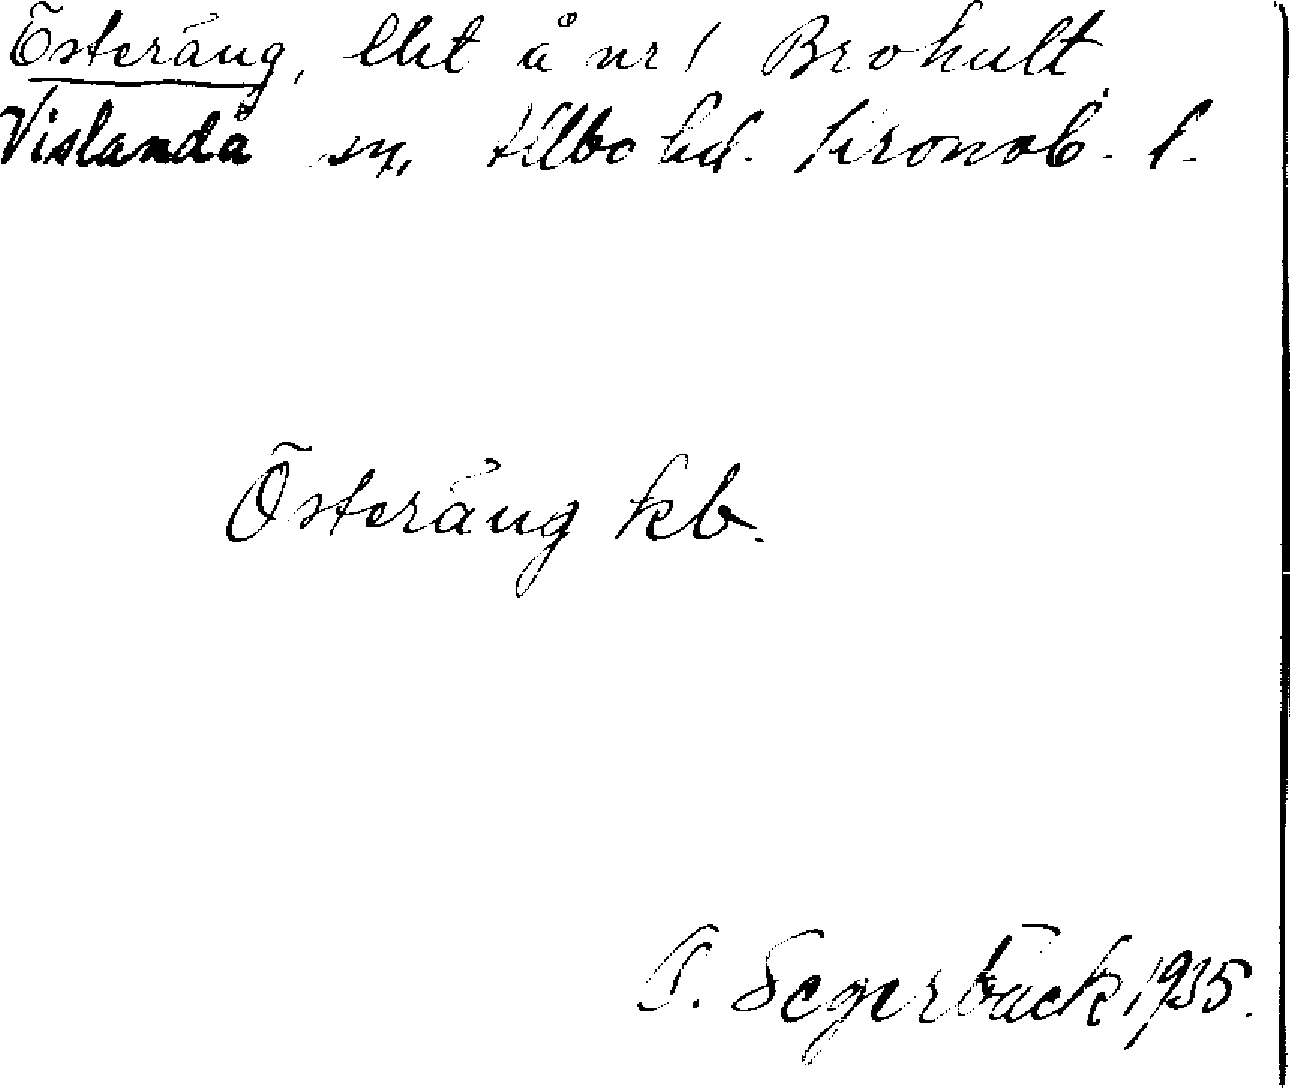 Österäng, lht å nr 1 Brohult
Vislanda sn, Allbo hd. Kronob. l.
Österäng kb.
T. Segerbäck 1935.